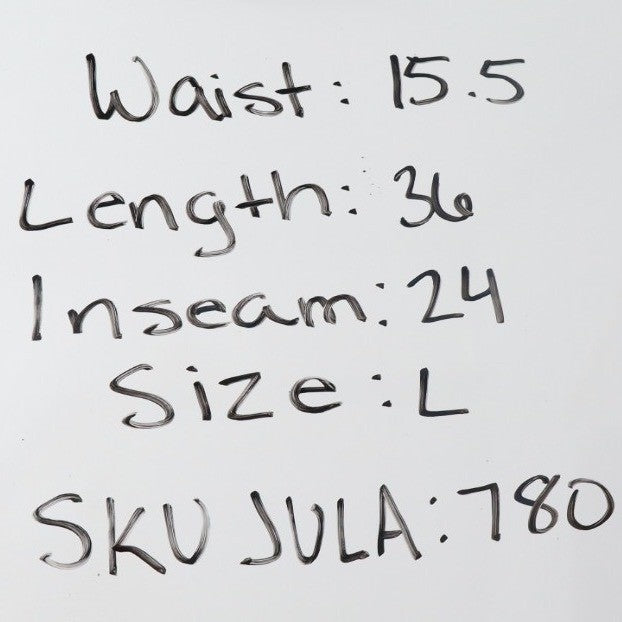 Waist: 15.5
Length: 36
Inseam: 24
Size: L
SKU JULA: 780